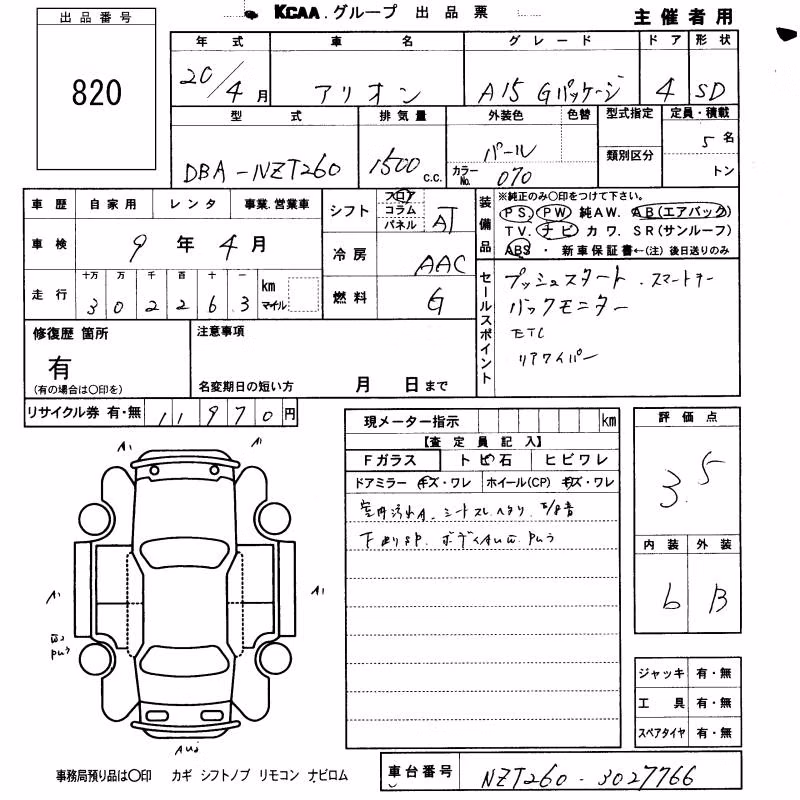 KCAA.グループ 出品票
主催者用
出品番号
820
年式 車名 グレード ドア 形状
20/4月 アリオン A15 Gパッケージ 4 SD
型式 排気量 外装色 色替 型式指定 定員・積載
DBA-NZT260 1500c.c. パール 5名
カラーNo. 070 類別区分 トン
車歴 自家用 レンタ 事業.営業車
車検 9年4月
走行 十万 万 千 百 十 一 km マイル
3 0 2 2 6.3
シフト フロア コラム パネル AT
冷房 AAC
燃料 G
装備品
※純正のみ〇印をつけて下さい。
PS. PW 純AW. AB(エアバック)
TV. ナビ カワ. SR(サンルーフ)
ABS ・ 新車保証書←(注) 後日送りのみ
セールスポイント
プッシュスタート.スマートキー
バックモニター
ETC
リアワイパー
修復歴 箇所
有
(有の場合は〇印を)
注意事項
名変期日の短い方 月 日まで
リサイクル券 有・無 11970円
現メーター指示 km
【査定員記入】
Fガラス トビ石 ヒビワレ
ドアミラー キズ・ワレ ホイール(CP) キズ・ワレ
室内汚れA.シートスレ.ヘタリ
下廻りSP. ボディAUω.
評価点
3.5
内装 外装
b B
A1 A1
A1 A1
ジャッキ 有・無
工具 有・無
スペアタイヤ 有・無
事務局預り品は〇印 カギ シフトノブ リモコン ナビロム
車台番号 NZT260-3027766